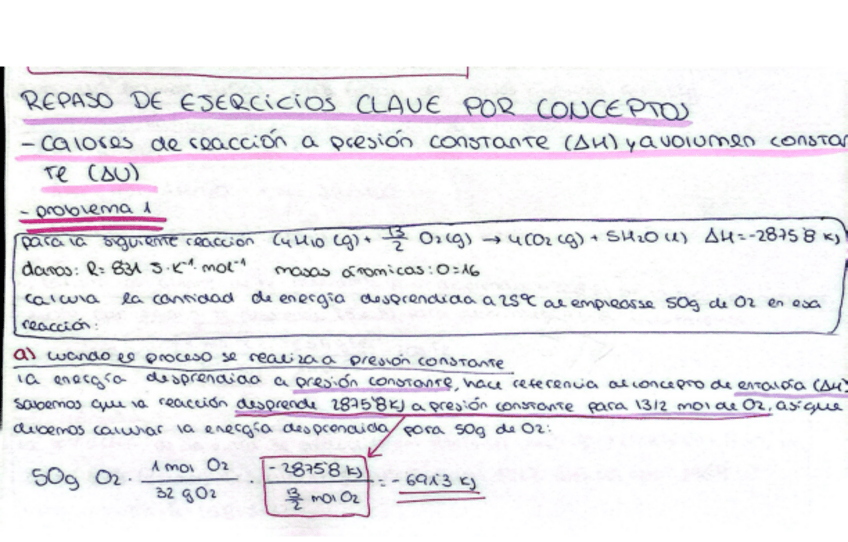 REPASO DE EJERCICIOS CLAVE POR CONCEPTOS
- calores de reacción a presión constante (ΔH) y a volumen constan
te (ΔU)
- problema 1
para la siguiente reacción C4H10 (g) + 13/2 O2 (g) → 4CO2 (g) + 5H2O (l) ΔH = -2875'8 kJ
datos: R = 8'31 J·K⁻¹·mol⁻¹ masas atómicas: O=16
calcula la cantidad de energía desprendida a 25ºC al emplearse 50g de O2 en esa
reacción:
a) cuando el proceso se realiza a presión constante
la energía desprendida a presión constante, hace referencia al concepto de entalpía (ΔH)
sabemos que la reacción desprende 2875'8 kJ a presión constante para 13/2 mol de O2, así que
debemos calcular la energía desprendida para 50g de O2:
50g O2 · 1 mol O2 / 32 g O2 · -2875'8 kJ / 13/2 mol O2 = -691'3 kJ